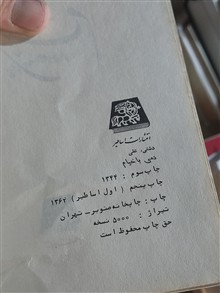 انتشارات اساطیر
دشتی، علی
دمی با خیام
چاپ سوم : ۱۳۴۴
چاپ پنجم (اول اساطیر) ۱۳۶۲
چاپ : چاپخانه صنوبر - تهران
تیراژ : ۵۰۰۰ نسخه
حق چاپ محفوظ است